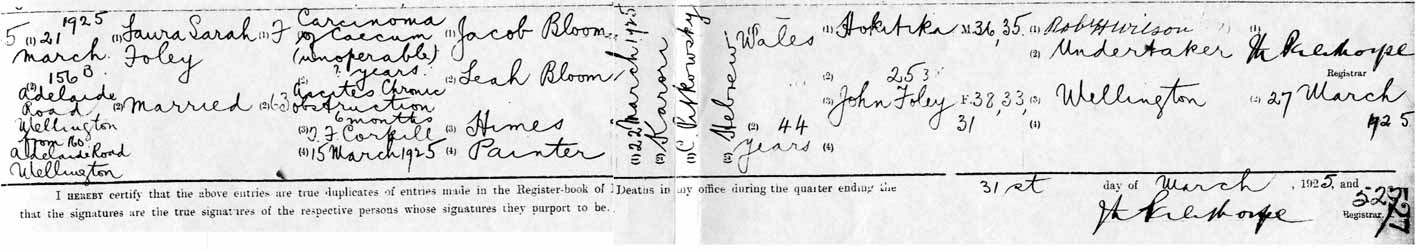 5 (1) 21 1925
March
156B
(2) Adelaide
Road
Wellington
from 156
Adelaide Road
Wellington
(1) Laura Sarah
Foley
(2) Married
(1) F
(2) 63
Carcinoma
of Caecum
(inoperable)
? years
(2) Ascites Chronic
obstruction
6 months
(3) T. F Corkill
(4) 15 March 1925
(1) Jacob Bloom
(2) Leah Bloom
(3) Himes
(4) Painter
(1) 22 March 1925
(2) Karori
(1) C Pitkowsky
(2) Hebrew
(1) Wales
(2) 44
(3) years
(1) Hokitika
(2) 25
(3) John Foley
(4)
M. 36, 35.
F. 38, 33,
31
(1) Rob H Wilson
(2) Undertaker
(3) Wellington
(4)
(1)
Registrar
(2) 27 March
1925
I HEREBY certify that the above entries are true duplicates of entries made in the Register-book of Deaths in my office during the quarter ending the 31st day of March, 1925, and
that the signatures are the true signatures of the respective persons whose signatures they purport to be.
Registrar.
527